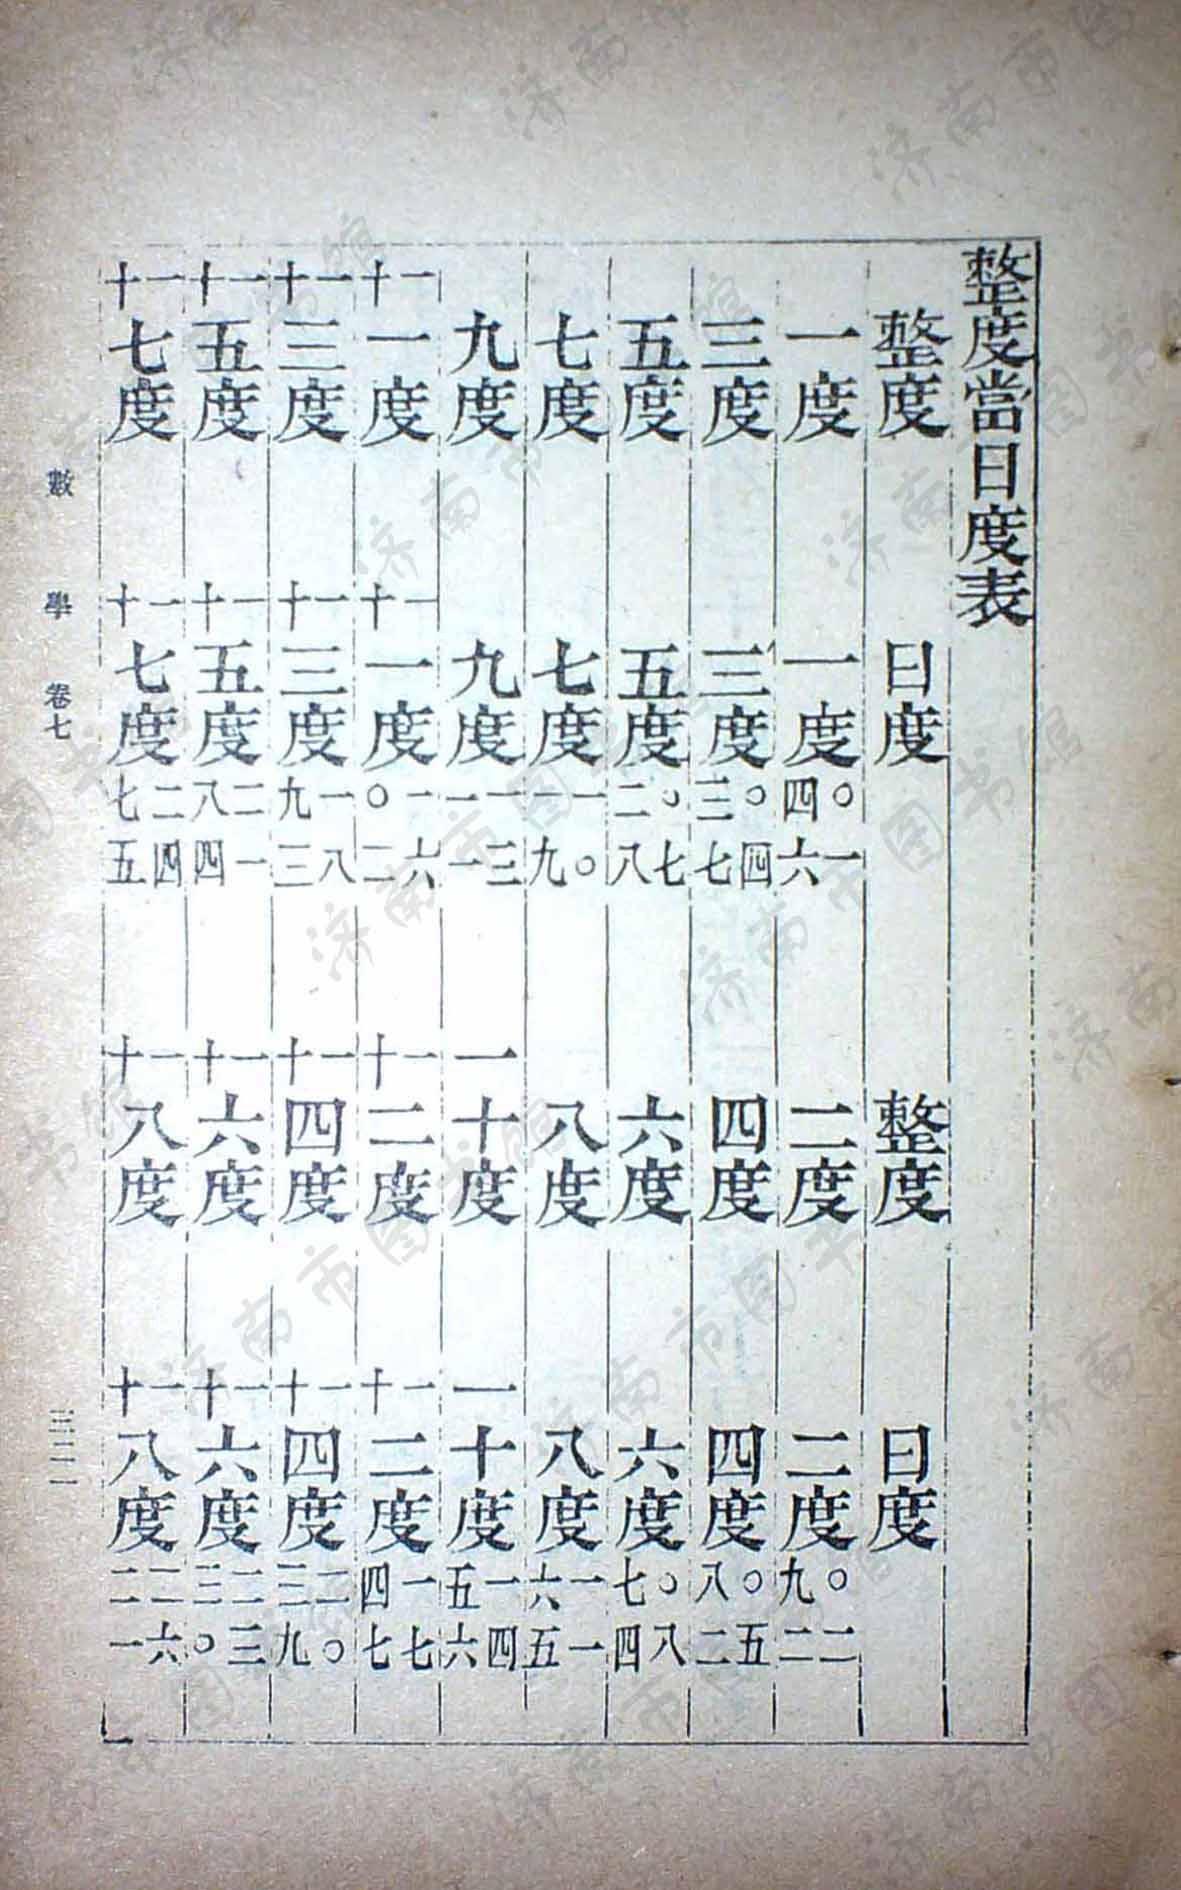 整度當日度表
整度 日度 整度 日度
一度 一度○一四六 二度 二度○二九二
三度 三度○四三七 四度 四度○五八二
五度 五度○七二八 六度 六度○八七四
七度 七度一○一九 八度 八度一一六五
九度 九度一三一一 一十度 一十度一四五六
一十一度 一十一度一六○二 一十二度 一十二度一七四七
一十三度 一十三度一八九三 一十四度 一十四度二○三九
一十五度 一十五度二一八四 一十六度 一十六度二三三○
一十七度 一十七度二四七五 一十八度 一十八度二六二一
數學 卷七 三二一
济南市图书馆